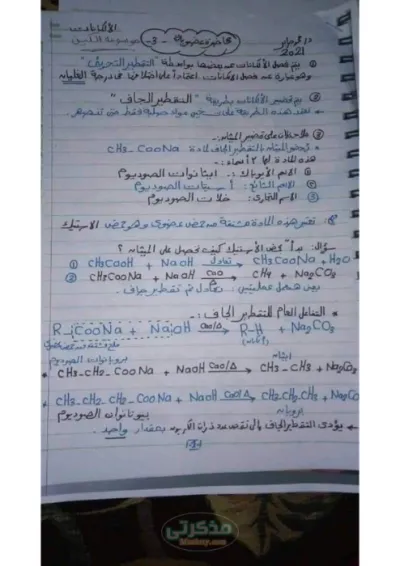 الألكانات
محاضرة عضوية -3-
2021
① يتم فصل الألكانات عن بعضها بواسطة "التقطير التجزيئي"
وهو عبارة عن فصل الألكانات اعتماداً على اختلافها في درجة الغليان
② يتم تحضير الألكانات بطريقة "التقطير الجاف"
تعتمد هذه الطريقة على تسخين مواد صلبة فقط حتى تنصهر
③ ملاحظات على تحضير الميثان:-
يحضر الميثان بالتقطير الجاف لمادة CH₃-CooNa
هذه المادة لها ٣ أسماء:-
① الاسم الأيوباك: إيثانوات الصوديوم
② الاسم الشائع: أسيتات الصوديوم
③ الاسم التجاري: خلات الصوديوم
تعتبر هذه المادة مشتقة من حمض عضوي وهو حمض الاستيك
سؤال: بدأً بحمض الأستيك كيف تحصل على الميثان؟
① CH₃CooH + NaOH تعادل→ CH₃CooNa + H₂O
② CH₃CooNa + NaOH CaO→ CH₄ + Na₂CO₃
تعادل ثم تقطير جاف.
* التفاعل العام للتقطير الجاف:-
R-CooNa + NaOH CaO/Δ→ R-H + Na₂CO₃
بروبانوات الصوديوم إيثان
* CH₃-CH₂-CooNa + NaOH CaO/Δ→ CH₃-CH₃ + Na₂CO₃
* CH₃-CH₂-CH₂-CooNa + NaOH CaO/Δ→ CH₃-CH₂-CH₃ + Na₂CO₃
بيوتانوات الصوديوم بروبان
يؤدي التقطير الجاف إلى نقص عدد ذرات الكربون بمقدار واحد.
-1-
مذكرتي